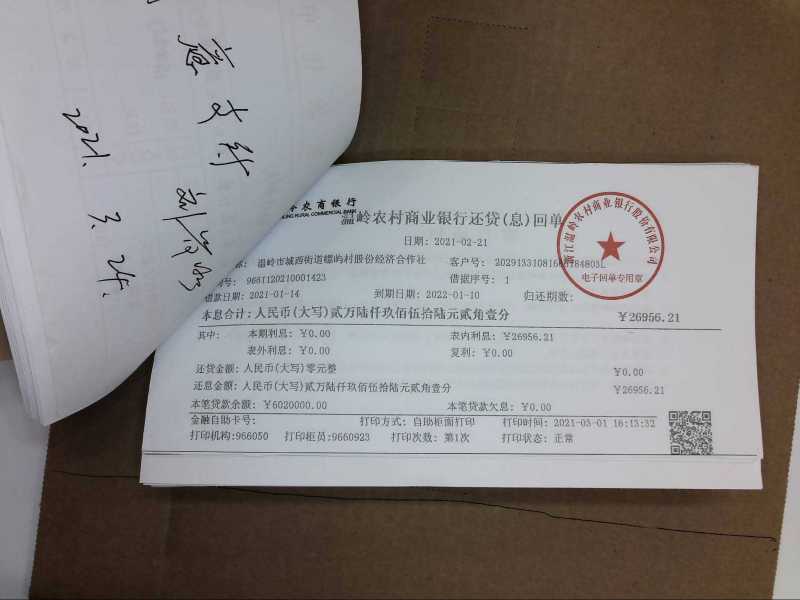 2021. 3. 24.
农商银行
RURAL COMMERCIAL BANK
温岭农村商业银行还贷(息)回单
日期: 2021-02-21
温岭市城西街道螺屿村股份经济合作社
客户号:
号: 9661120210001423
借据序号: 1
借款日期: 2021-01-14
到期日期: 2022-01-10
归还期数:
本息合计: 人民币(大写)贰万陆仟玖佰伍拾陆元贰角壹分
￥26956.21
其中:
本期利息: ￥0.00
表内利息: ￥26956.21
表外利息: ￥0.00
复利: ￥0.00
还贷金额: 人民币(大写)零元整
￥0.00
还息金额: 人民币(大写)贰万陆仟玖佰伍拾陆元贰角壹分
￥26956.21
本笔贷款余额: ￥6020000.00
本笔贷款欠息: ￥0.00
金融自助卡号:
打印方式: 自助柜面打印
打印时间: 2021-03-01 16:13:32
打印机构: 966050
打印柜员: 9660923
打印次数: 第1次
打印状态: 正常
浙江温岭农村商业银行股份有限公司
电子回单专用章